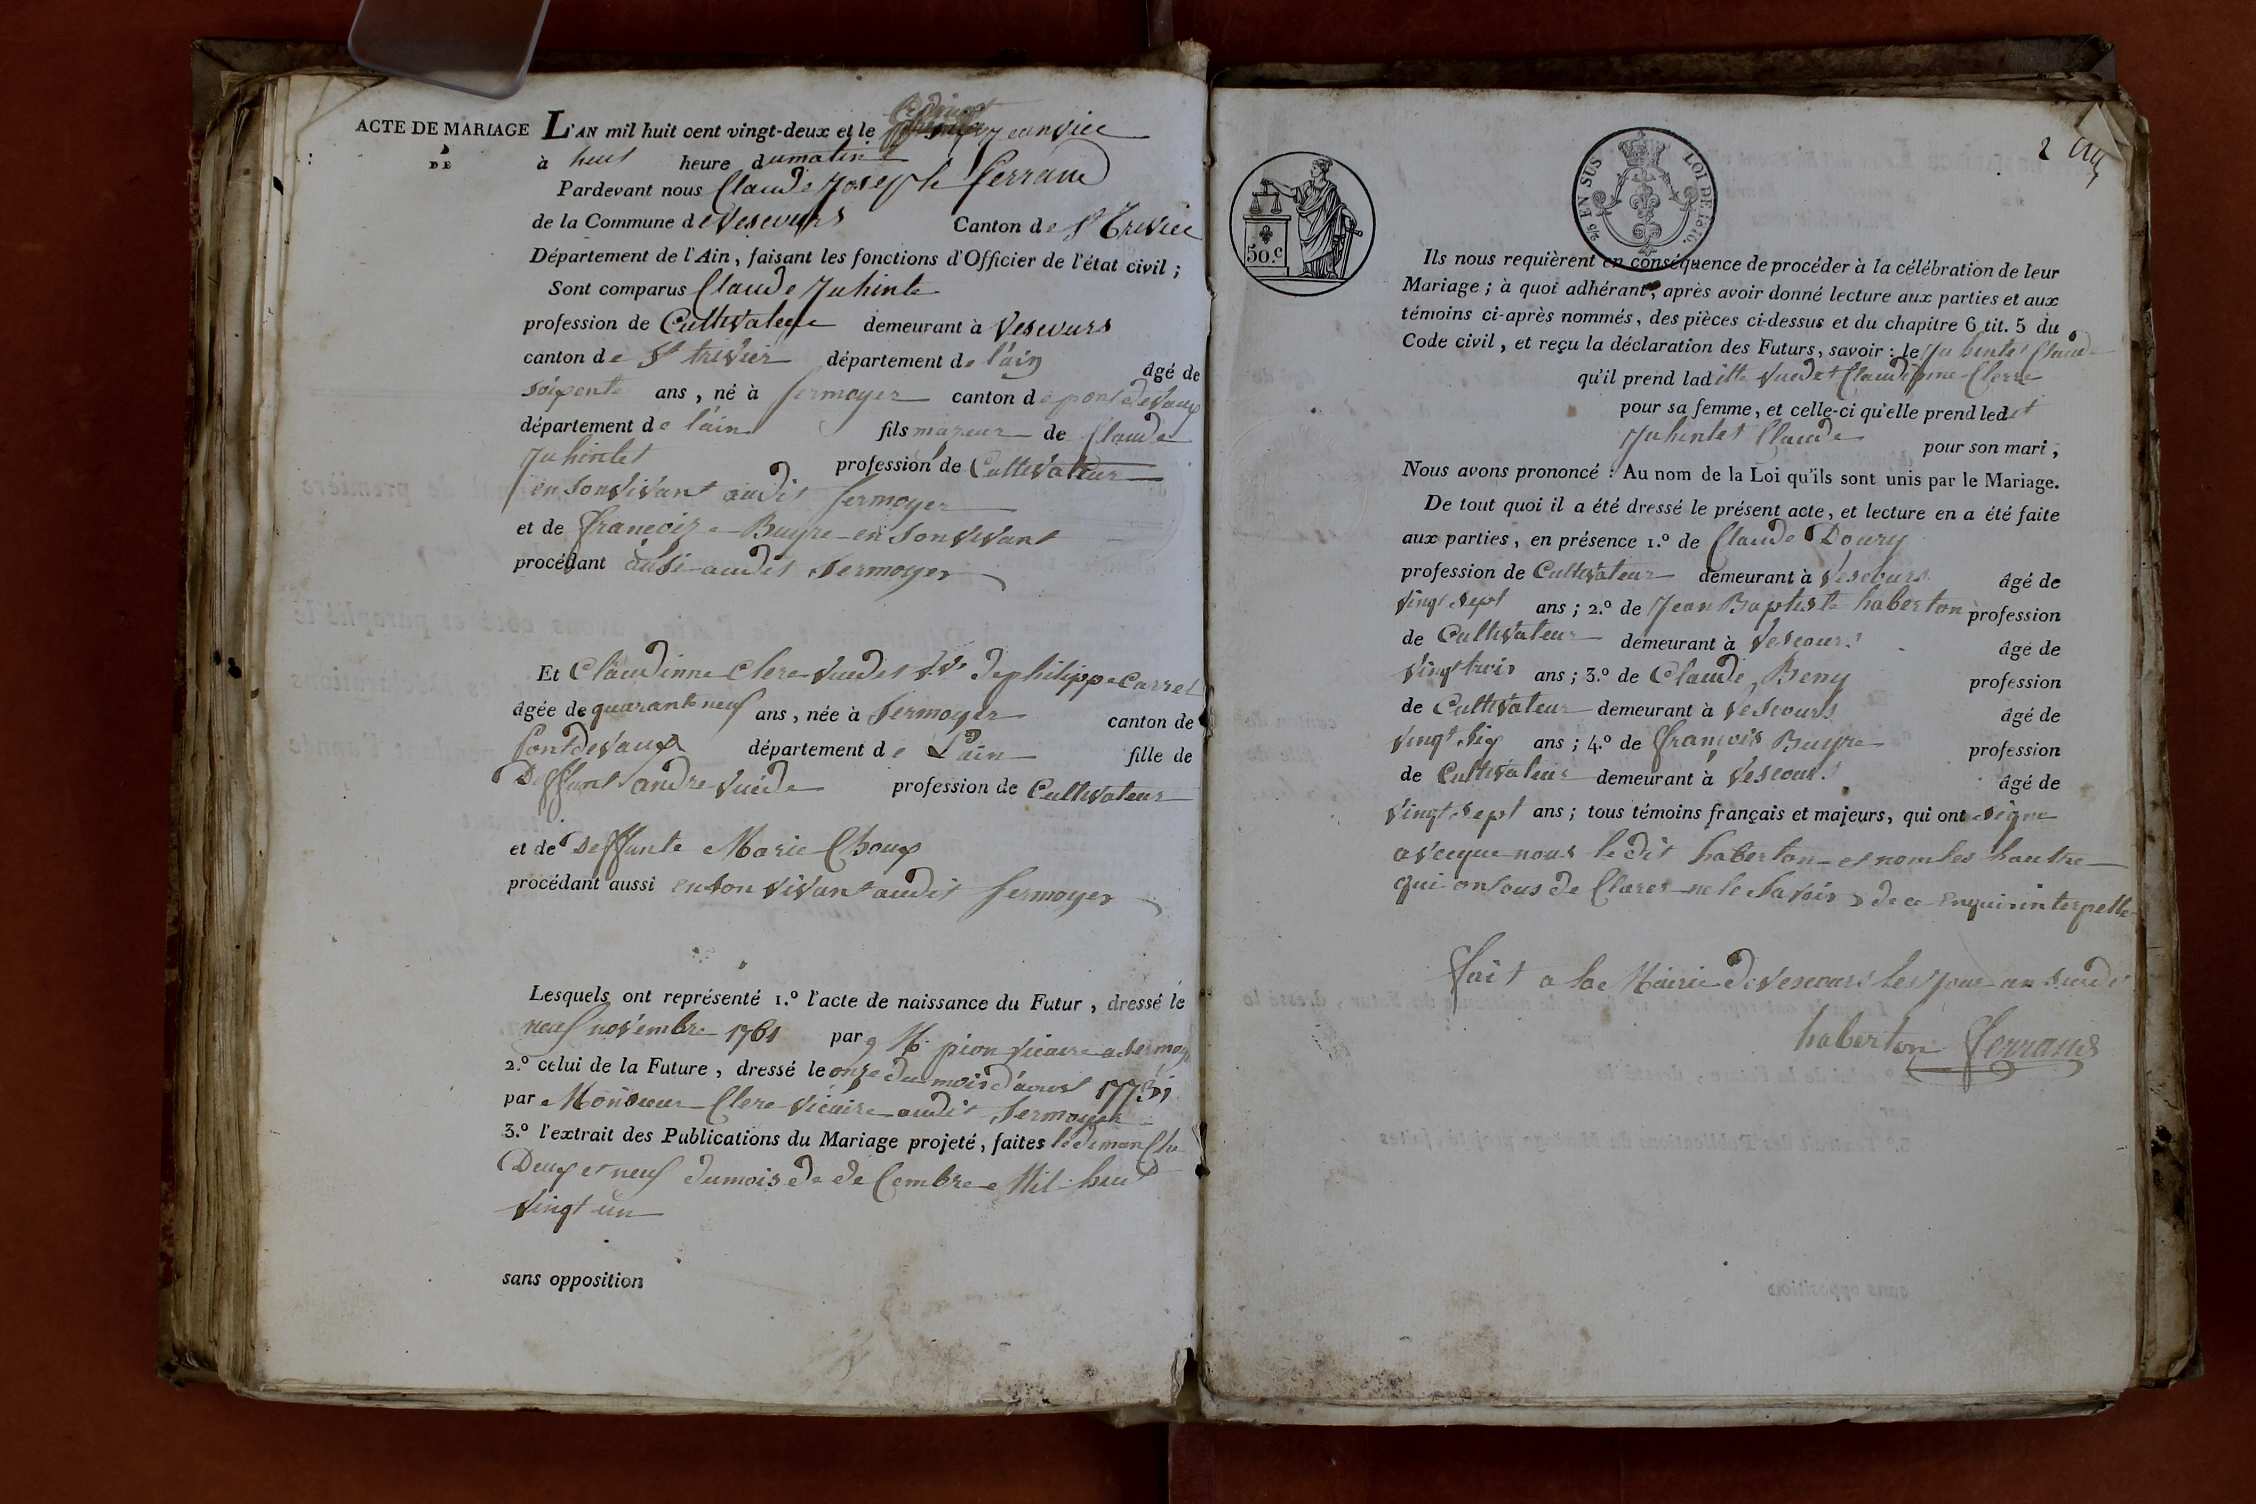 ACTE DE MARIAGE
DE
L'AN mil huit cent vingt-deux et le janvier
à huit heure du matin
Pardevant nous Claude Joseph ferrand
de la Commune de Vescours Canton de St Trivier
Département de l'Ain, faisant les fonctions d'Officier de l'état civil ;
Sont comparus Claude Juhinte
profession de Cultivateur demeurant à Vescours
canton de St trivier département de l'ain âgé de
soixente ans, né à sermoyer canton de pontdevaux
département de l'ain fils majeur de Claude
Juhintet profession de Cultivateur
en son vivant audit sermoyer
et de françoise Buyre en son vivant
procédant ausi audit Sermoyer
Et Claudinne Clere vuedet Vve de philippe Carret
âgée de quarante neuf ans, née à Sermoyer canton de
Pontdevaux département de L'ain fille de
Deffunt andre vuède profession de Cultivateur
et de Deffunte Marie Choux
procédant aussi en son vivant audit sermoyer
Lesquels ont représenté 1.º l'acte de naissance du Futur, dressé le
neuf novembre 1761 par M. pion vicaire a sermoy
2.º celui de la Future, dressé le onze du mois d'aoust
par Monsieur Clere vicaire audit Sermoyer
3.º l'extrait des Publications du Mariage projeté, faites le dimanche
Deux et neuf du mois de deCembre Mil huit
vingt un
sans opposition
2
25 EN SUS LOI DE 1816.
50.c
Ils nous requièrent en conséquence de procéder à la célébration de leur
Mariage ; à quoi adhérant, après avoir donné lecture aux parties et aux
témoins ci-après nommés, des pièces ci-dessus et du chapitre 6 tit. 5 du
Code civil, et reçu la déclaration des Futurs, savoir : le Juhintet Claude
qu'il prend laditte vuedet Claudinne Clere
pour sa femme, et celle-ci qu'elle prend ledet
Juhintet Claude pour son mari ;
Nous avons prononcé : Au nom de la Loi qu'ils sont unis par le Mariage.
De tout quoi il a été dressé le présent acte, et lecture en a été faite
aux parties, en présence 1.º de Claude Doury
profession de Cultivateur demeurant à Vescours âgé de
vingt sept ans ; 2.º de Jean Baptiste haberton profession
de Cultivateur demeurant à Vescours âgé de
vingt trois ans ; 3.º de Claude Beny profession
de Cultivateur demeurant à Vescours âgé de
vingt six ans ; 4.º de françois Buyre profession
de Cultivateur demeurant à Vescours âgé de
vingt sept ans ; tous témoins français et majeurs, qui ont signe
avecque nous le dit haberton et nom les hautre
qui on tous de Clares ne le savoir de ce enquis interpelle
fait a la Mairie de vescours les jour an susdi
haberton ferrand